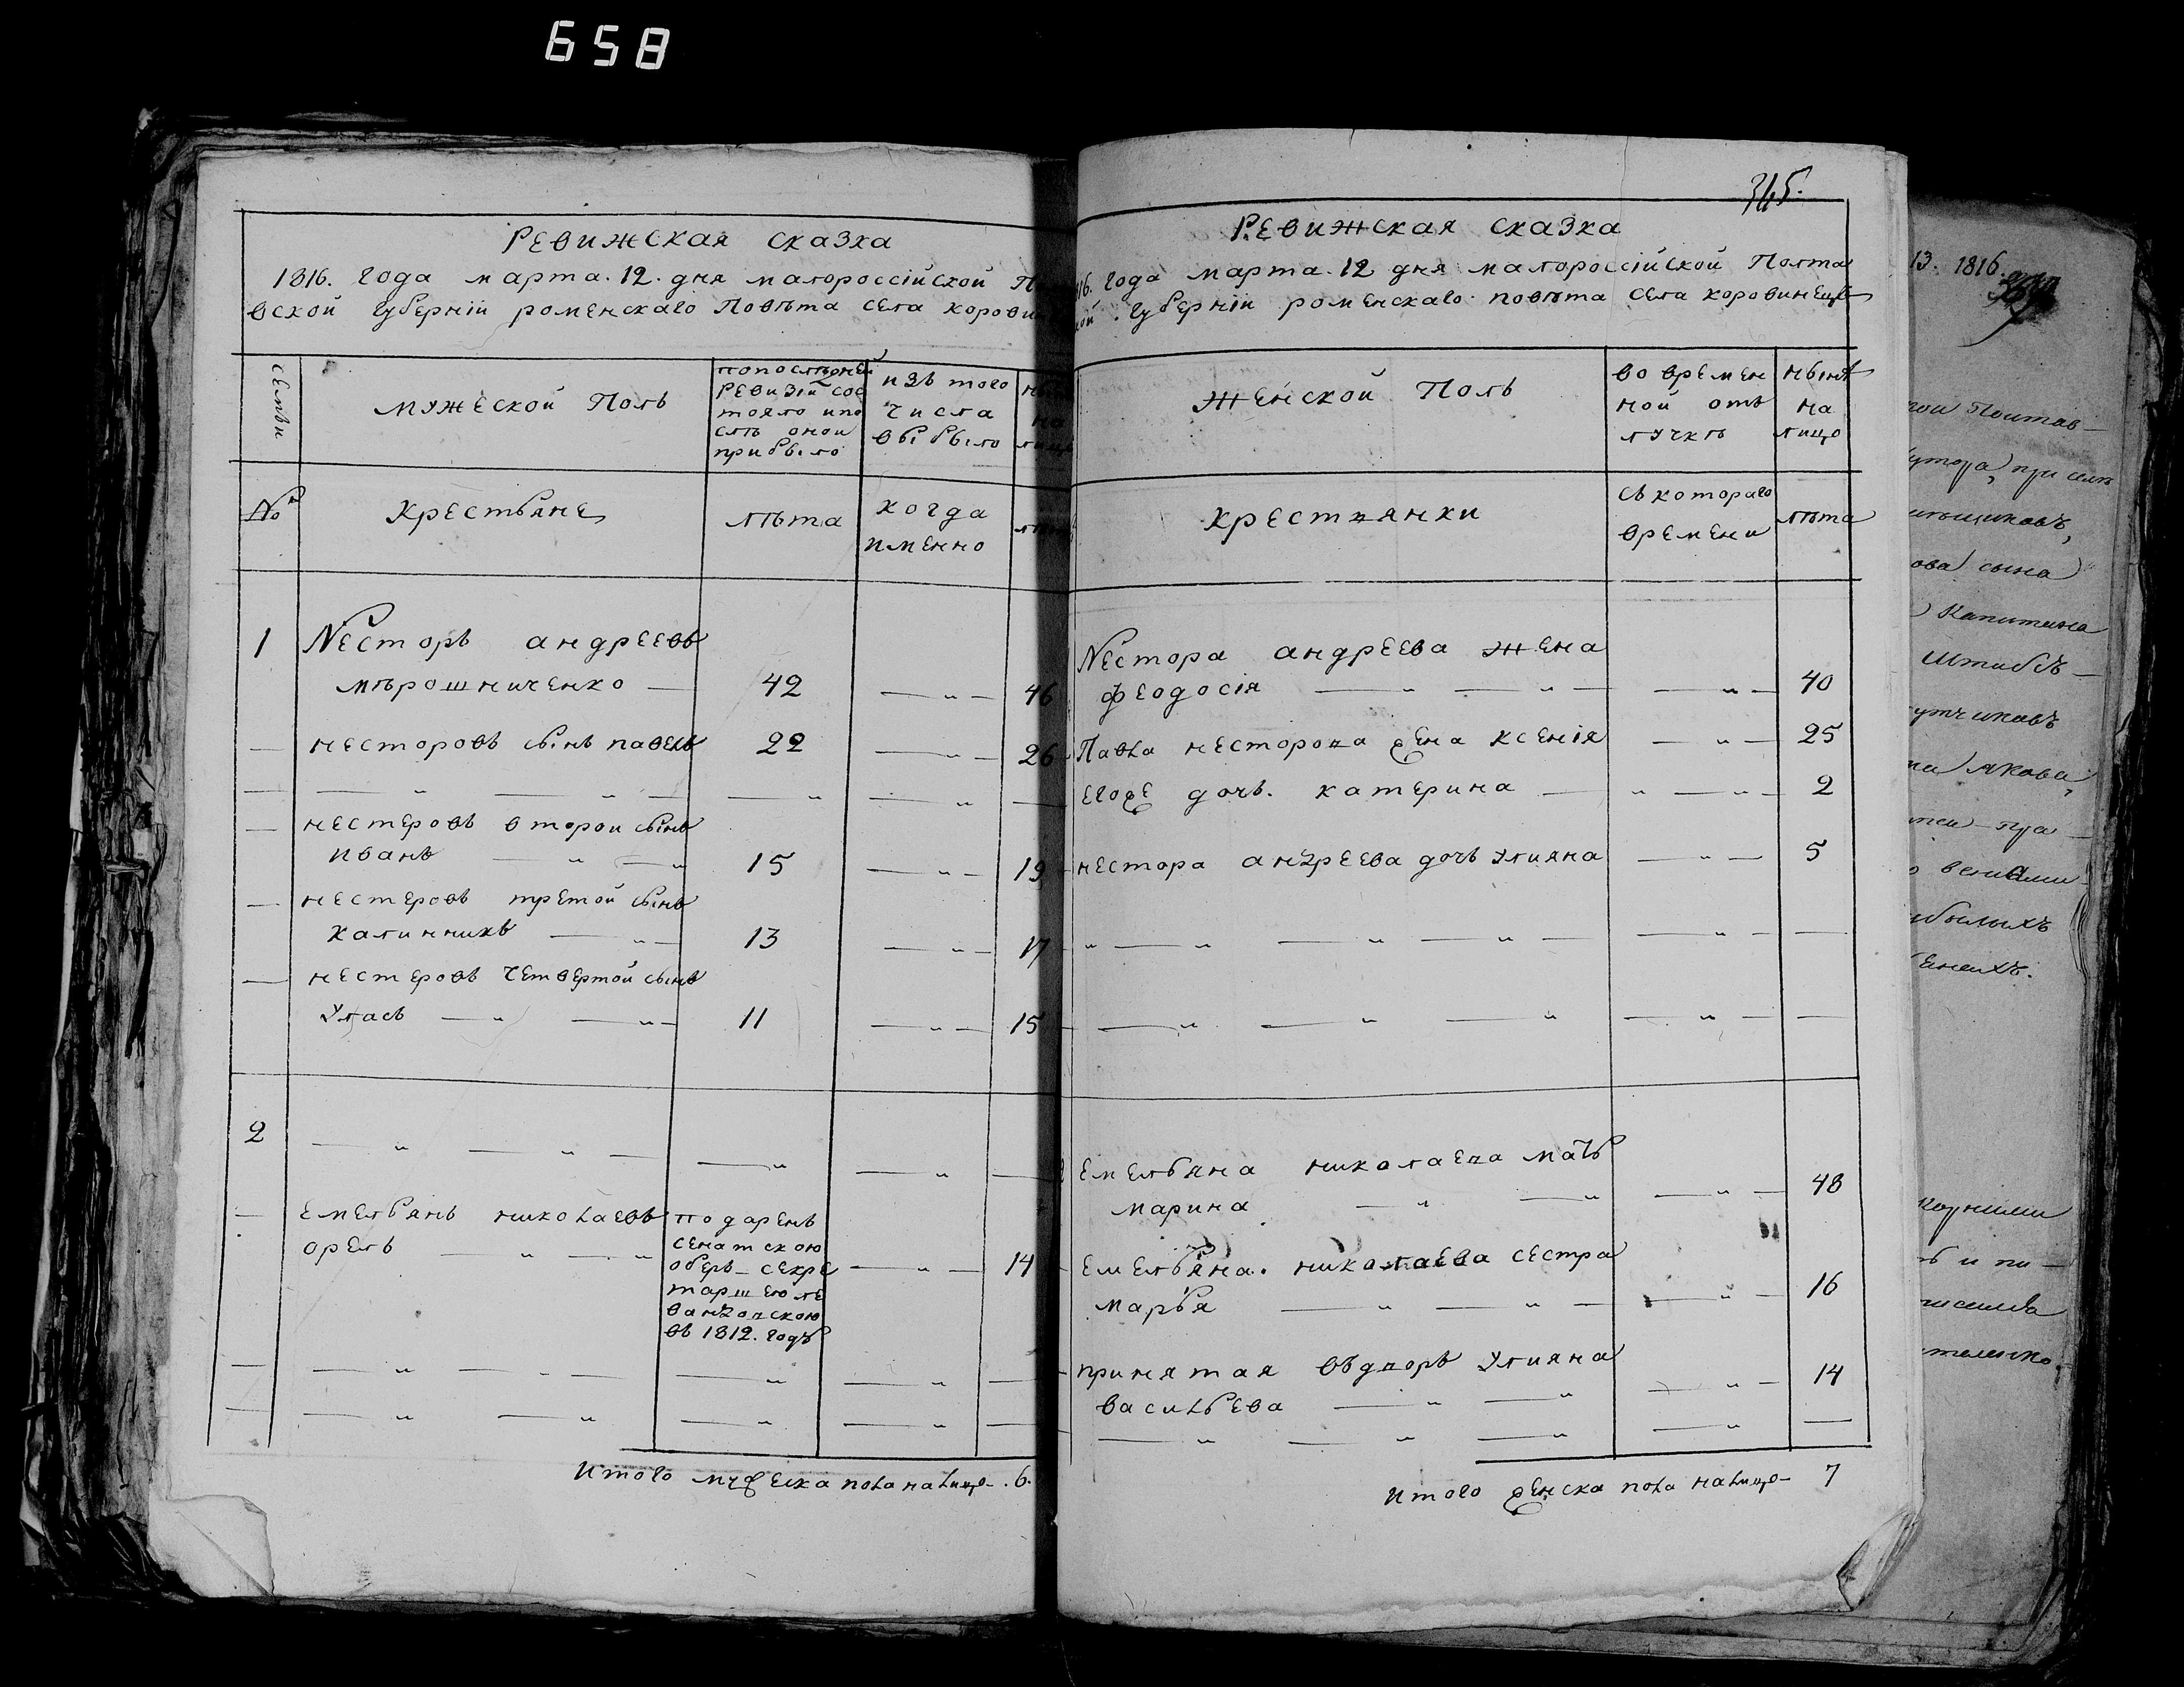 658
Ревижская сказка
1816. года марта. 12. дня малороссійской П
вской губерніи роменскаго Повѣта села корови
семьи
мужеской Полъ
попослѣдней
ревизіи сос
тояло ипо
слѣ оной
прибыло
изъ того
числа
выбыло
№
Крестьяне
лѣта
когда
именно
1 Несторъ андреевъ
мѣрошниченко — 42 — „ — 46
— несторовъ сынъ павелъ 22 — „ — 26
— — „ — „ — — „ — „ —
— нестеровъ второй сынъ
иванъ — „ — „ 15 — „ — 19
— нестеровъ третой сынъ
калинникъ — „ — 13 — „ — 17
— нестеровъ четвертой сынъ
Уласъ — „ — „ — 11 — „ — 15
2 — „ — „ — — „ — „ —
— емельянъ николаевъ
орелъ — „ — „ — „ — 14
подаренъ
сенатскою
оберъ-секре
таршею ле
вандовскою
въ 1812. годѣ
— — „ — „ — — „ — „ —
— — „ — „ — „ — „ —
Итого мужеска пола налицо. 6.
345.
Ревижская сказка
16. года марта. 12 дня малороссійской Полта
кой губерніи роменскаго повѣта села коровинецъ
Женской Полъ
во времен
ной отъ
лучкѣ
нынѣ
на
лицо
крестпянки
съ котораго
времени
лѣта
Нестора андреева жена
феодосія — „ — „ — — „ — 40
Павла несторова жена ксенія — „ — 25
егоже дочь. катерина — „ — „ — 2
нестора андреева дочь улияна — „ — 5
„ — „ — „ — „ — — „ — —
— „ — „ — „ — „ — —
емельяна николаева мать
марина — „ — „ — „ — 48
емельяна. николаева сестра
марья — „ — „ — „ — 16
принятая въдворъ улияна
васильева — „ — „ — „ — 14
— „ — „ — „ — „ —
Итого женска пола налицо — 7
13. 1816.
ова сына
Капитана
Якова,